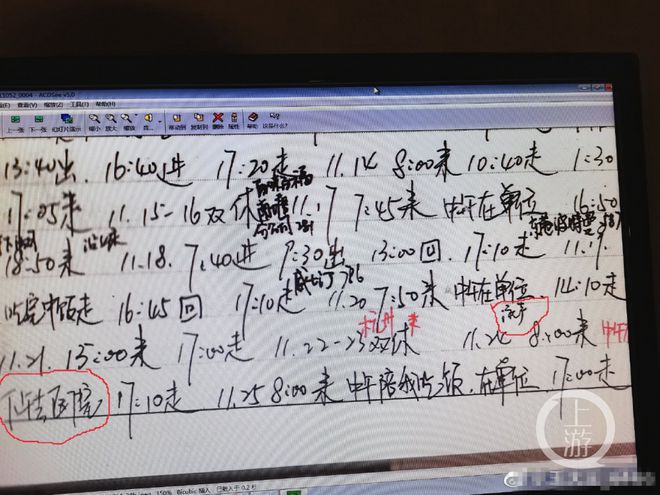 1052_0004 - ACDSee v5.0
查看(V) 修改(M) 工具(T) 帮助(H)
上一张 下一张 幻灯片演示 缩小 放大 缩放 移动到 复制到 删除 属性 帮助 这是什么?
13:40出. 16:40进 17:20走 11.14 8:00来 10:40走 1:30
17:05来 11.15-16双休 11.17 7:45来 中午在单位 16:50
18:50来 11.18. 7:40进 7:30出 13:00回. 17:10走 11.19.
吃完中饭走 16:45回 17:10走 11.20 7:50来 中午在单位 14:10走
11.21. 13:00来 17:00走 11.22-23双休 11.24 8:00来 中午
下午去医院 17:10走 11.25 8:00来 中午陪我吃饭. 在单位 17:00走
150% Bicubic 插入 已载入于 0.2 秒
上游